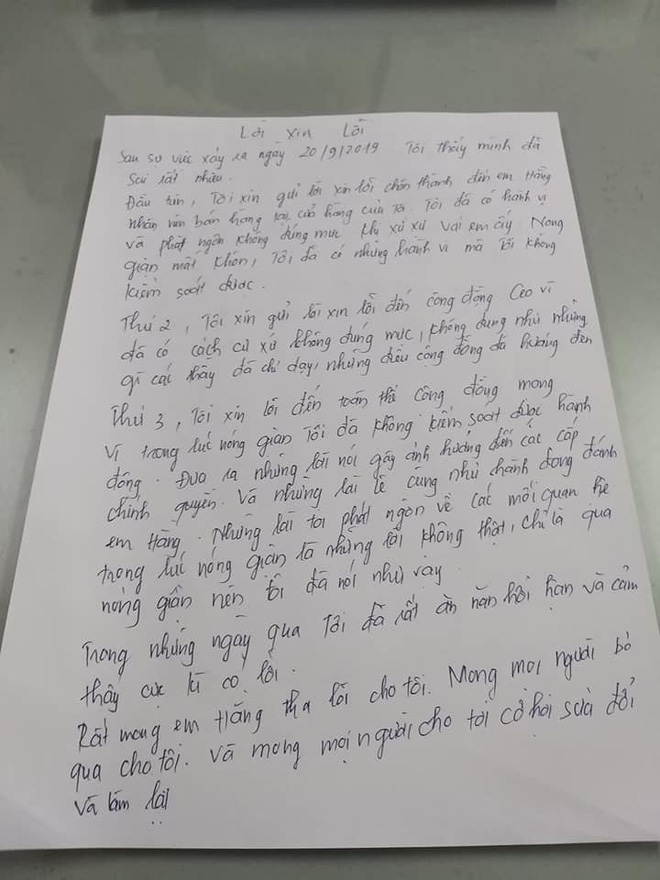 Lời xin Lỗi
Sau sự việc xảy ra ngày 20/9/2019 Tôi thấy mình đã
Sai rất nhiều.
Đầu tiên, Tôi xin gửi lời xin lỗi chân thành đến em Hằng
Nhân viên bán hàng tại cửa hàng của Tôi. Tôi đã có hành vi
và phát ngôn không đúng mực khi xử xự với em ấy. Nóng
giận mất khôn, Tôi đã có những hành vi mà tôi không
kiểm soát được.
Thứ 2, Tôi xin gửi lời xin lỗi đến cộng đồng Ceo vì
đã có cách cư xử không đúng mực, không đúng như những
gì các thầy đã chỉ dạy, những điều cộng đồng đã hướng đến
Thứ 3, Tôi xin lỗi đến toàn thể cộng đồng mạng
Vì trong lúc nóng giận Tôi đã không kiểm soát được hành
động. Đưa ra những lời nói gây ảnh hưởng đến các cấp
chính quyền. Và những lời lẽ cũng như hành động đánh
em Hằng. Những lời tôi phát ngôn về các mối quan hệ
trong lúc nóng giận là những lời không thật, chỉ là quá
nóng giận nên tôi đã nói như vậy.
Trong những ngày qua Tôi đã rất ăn năn hối hận và cảm
thấy cực kì có lỗi.
Rất mong em Hằng tha lỗi cho tôi. Mong mọi người bỏ
qua cho tôi. Và mong mọi người cho tôi cơ hội sửa đổi
Và làm lại